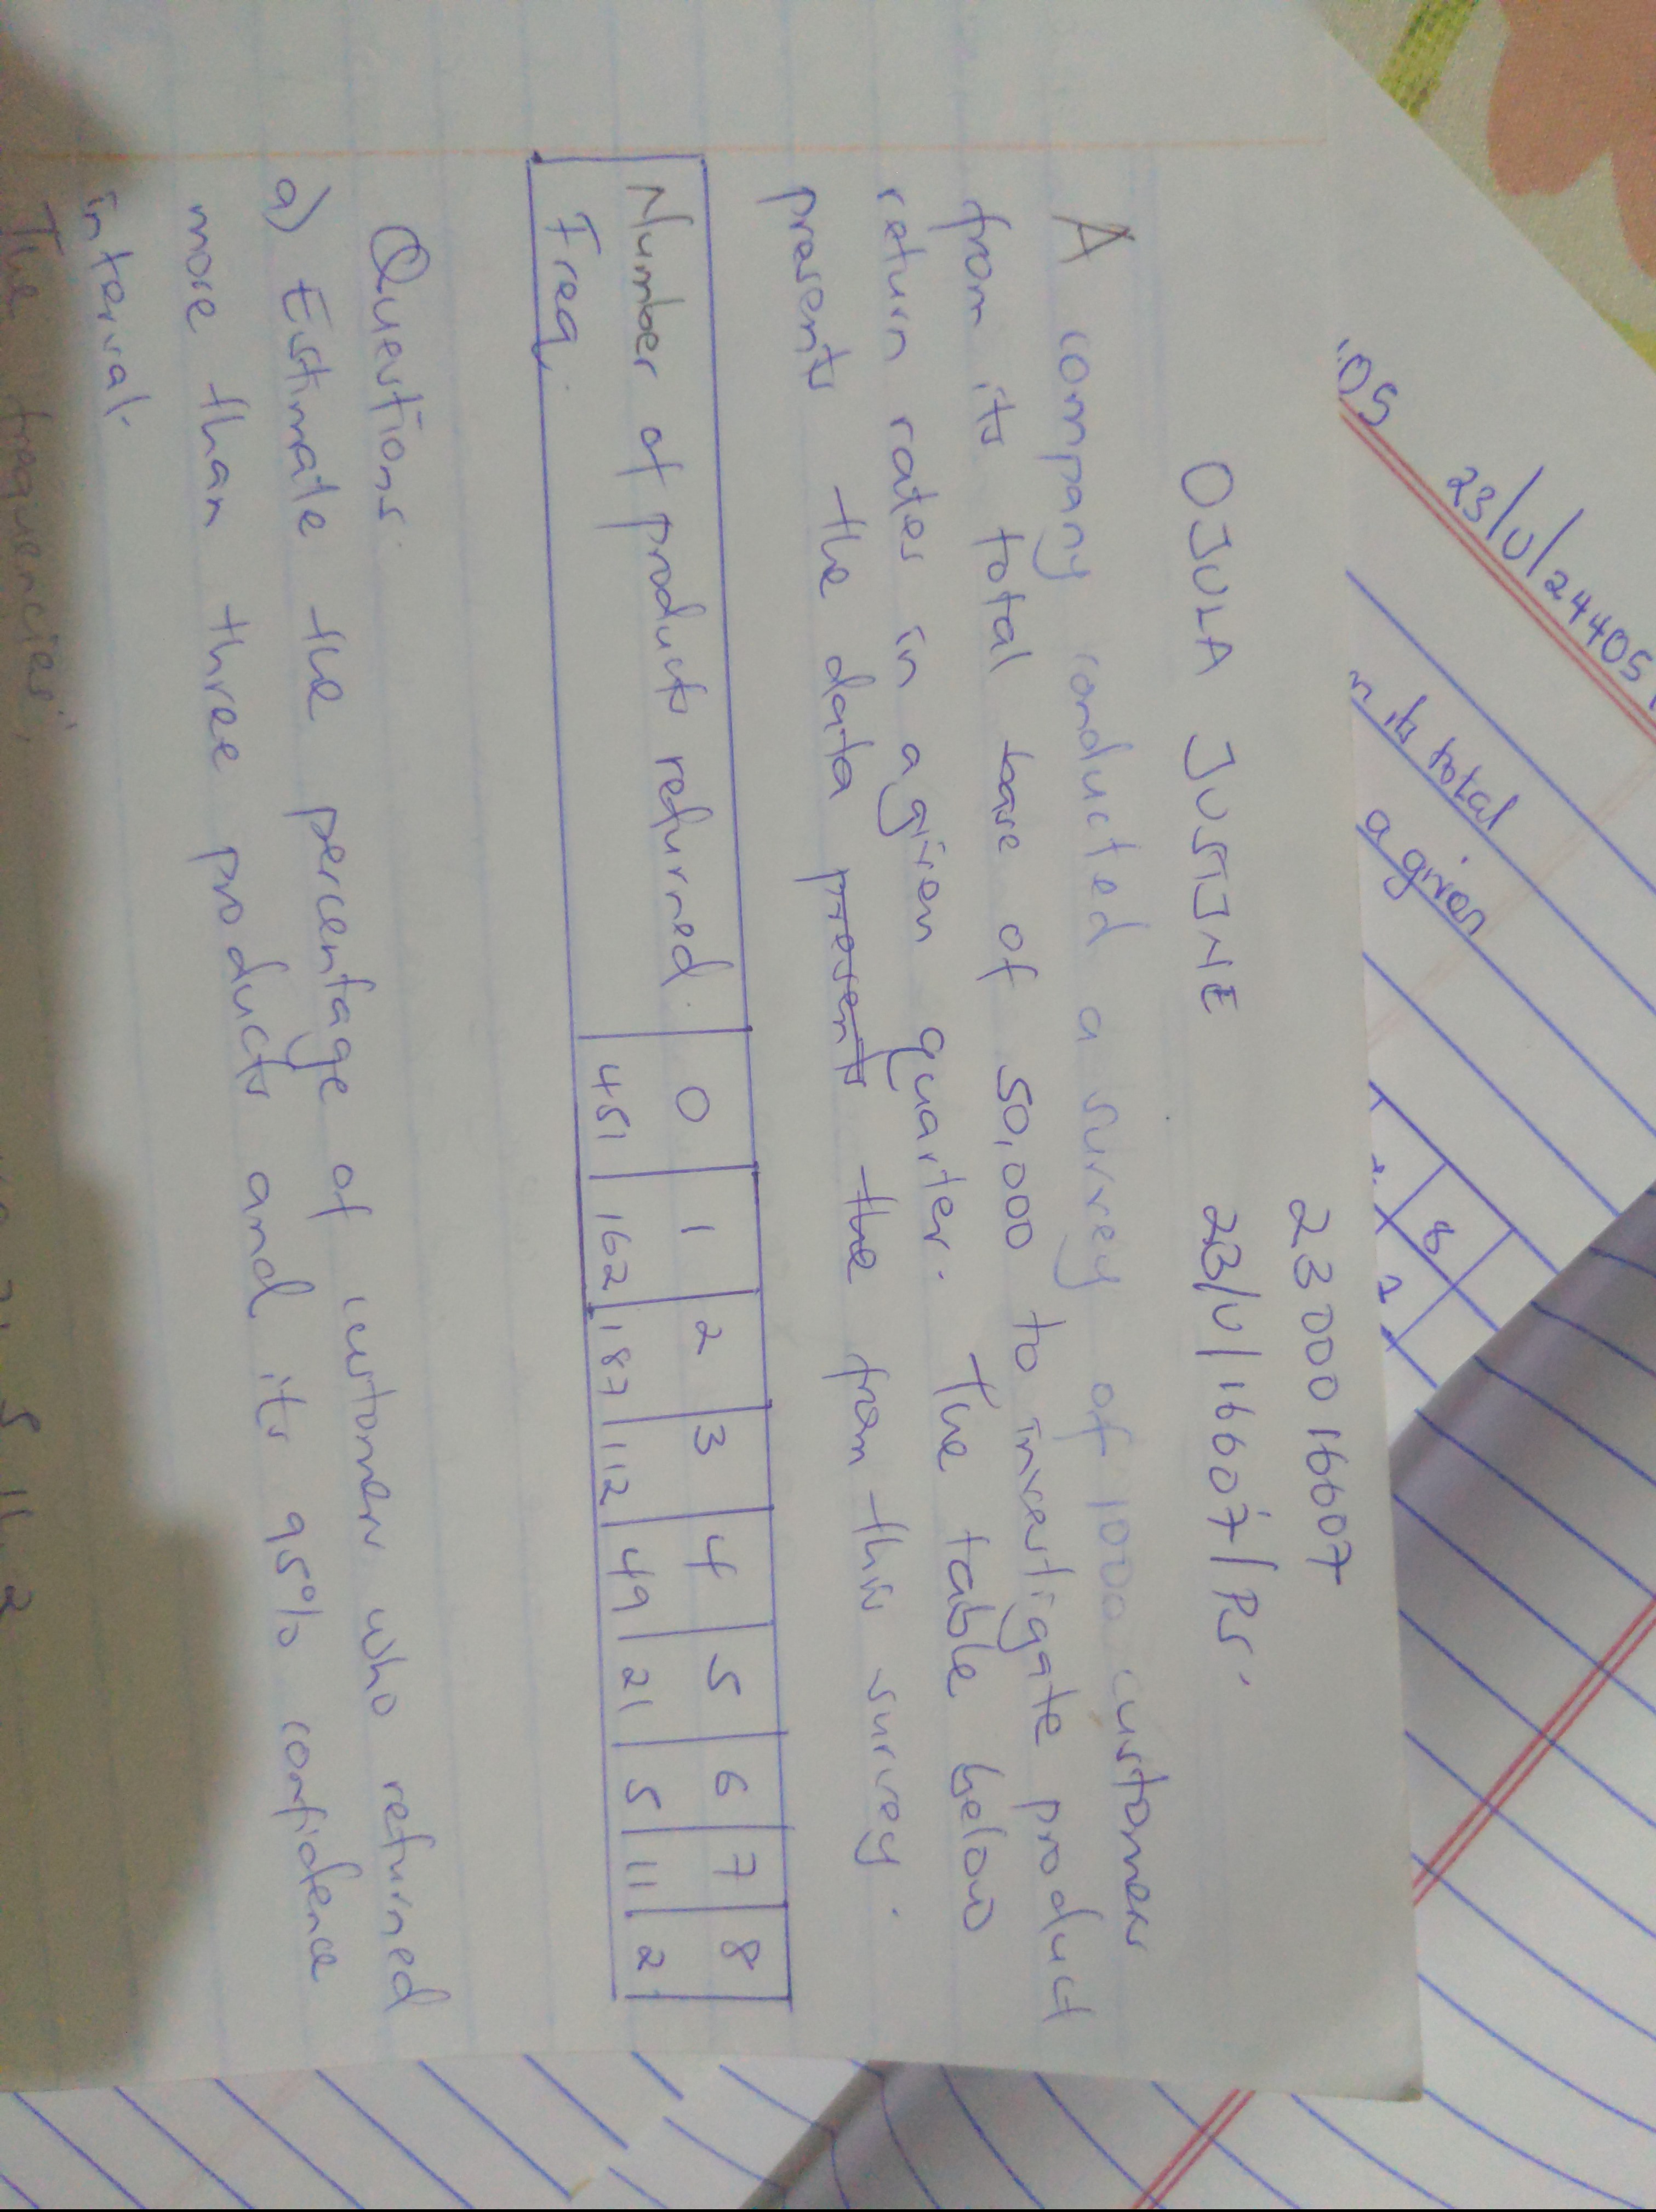 2300016607
OJULA JUSTINE 23/U/16607/PS.
A company conducted a survey of 1000 customers
from its total base of 50,000 to investigate product
return rates in a given quarter. The table below
presents the data presents the from this survey.
Number of products returned. 0 1 2 3 4 5 6 7 8
Freq. 451 162 187 112 49 21 5 11 2
Questions.
a) Estimate the percentage of customers who returned
more than three products and its 95% confidence
interval.
The frequencies;
23/U/24405
n its total
a given
8
2